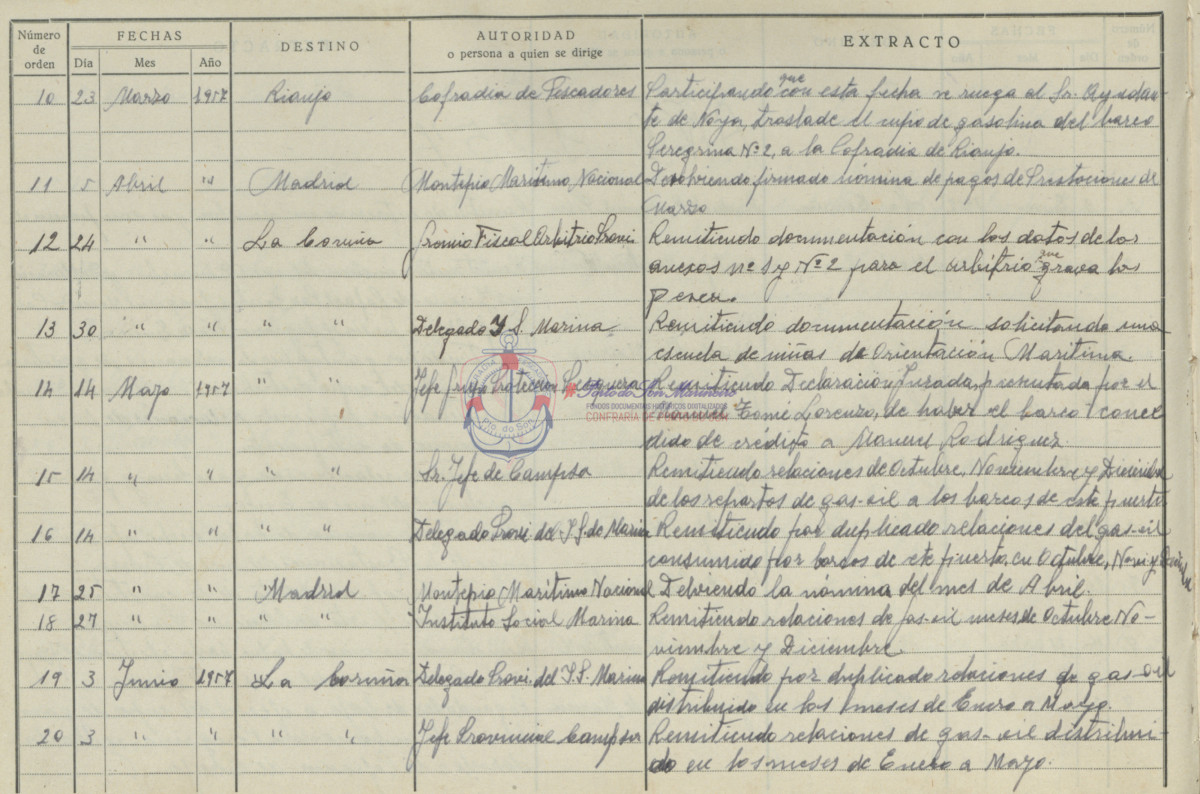 Número de orden FECHAS DESTINO AUTORIDAD EXTRACTO
Dia Mes Año o persona a quien se dirige
10 23 Marzo 1957 Rianjo Cofradia de Pescadores Participando que con esta fecha se ruega al Sr. Ayudan-
te de Noya, traslade el cupo de gasolina del barco
Peregrina Nº 2, a la Cofradia de Rianjo.
11 5 Abril " Madrid Montepio Maritimo Nacional Devolviendo firmado nomina de pagos de Prestaciones de
Marzo
12 24 " " La Coruña Gremio Fiscal Arbitrio Provi. Remitiendo documentación con los datos de los
anexos nº 1 y Nº 2 para el arbitrio que grava los
13 30 " " " " Delegado I S. Marina Remitiendo documentación solicitando una
escuela de niñas de Orientación Maritima.
14 14 Mayo 1957 " " Jefe Protección Pesquera Remitiendo Declaración Jurada, presentada por el
Lorenzo, de haber el barco conce
dido de crédito a Manuel Rodriguez.
Porto do Son Marineiro
FONDOS DOCUMENTAIS HISTÓRICOS DIXITALIZADOS
CONFRARÍA DE PORTO DO SON
Pto. do Son
15 14 " " " " Sr. Jefe de Campsa Remitiendo relaciones de Octubre, Noviembre y Diciembre
de los repartos de gas-oil a los barcos de este puerto
16 14 " " " " Delegado Provi del I.S. de Marina Remitiendo por duplicado relaciones del gas-oil
consumido por barcos de este puerto, en Octubre, Novi y
17 25 " " " Madrid Montepio Marítimo Nacional Delviendo la nómina del mes de Abril.
18 27 " " " " Instituto Social Marina Remitiendo relaciones de gas-oil meses de Octubre No-
viembre y Diciembre.
19 3 Junio 1957 La Coruña Delegado Provi. del I.S. Marina Remitiendo por duplicado relaciones de gas-oil
distribuido en los meses de Enero a Mayo.
20 3 " " " " Jefe Provincial Campsa Remitiendo relaciones de gas-oil distribui-
do en los meses de Enero a Mayo.